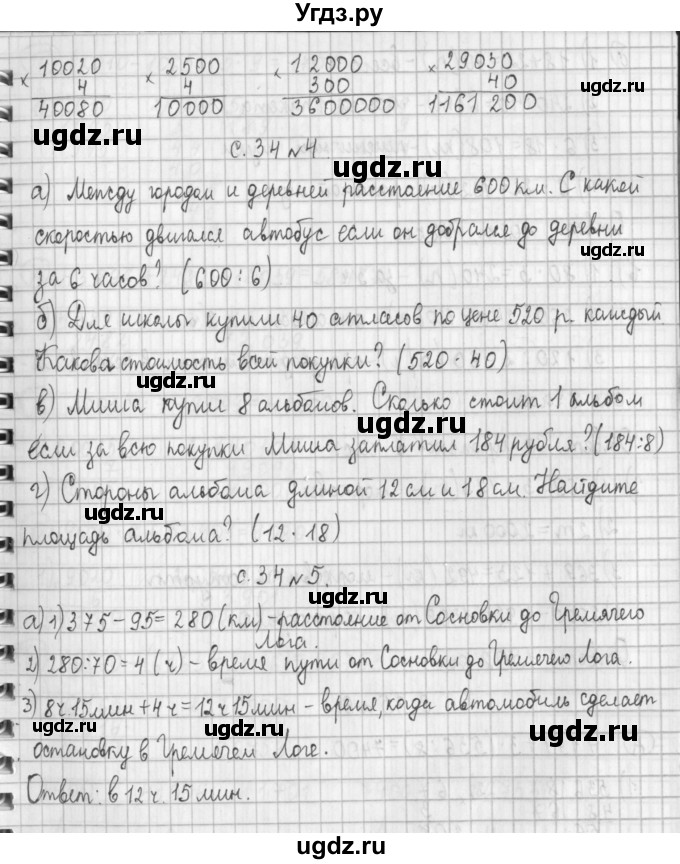 Угдз.ру
× 10020 × 2500 × 12000 × 29030
4 4 300 40
40080 10000 3600000 1161200
ugdz.ru ugdz.ru
с. 34 №4.
ugdz.ru
а) Между городом и деревней расстояние 600 км. С какой
ugdz.ru
скоростью двигался автобус если он добрался до деревни
за 6 часов? (600 : 6)
ugdz.ru
б) Для школы купили 40 атласов по цене 520 р. каждый.
Какова стоимость всей покупки? (520 · 40)
ugdz.ru
в) Миша купил 8 альбомов. Сколько стоит 1 альбом
ugdz.ru
если за всю покупки Миша заплатил 184 рубля? (184:8)
г) Стороны альбома длиной 12 см и 18 см. Найдите
ugdz.ru
площадь альбома? (12 · 18)
ugdz.ru
с. 34 №5.
а) 1) 375 - 95 = 280 (км) - расстояние от Сосновки до Гремячего
Лога.
ugdz.ru
2) 280:70 = 4 (ч) - время пути от Сосновки до Гремячего Лога.
ugdz.ru
3) 8ч 15мин + 4ч = 12ч 15мин - время, когда автомобиль сделает
ugdz.ru
остановку в Гремячем Логе.
Ответ: в 12 ч. 15 мин.
ugdz.ru
ugdz.ru